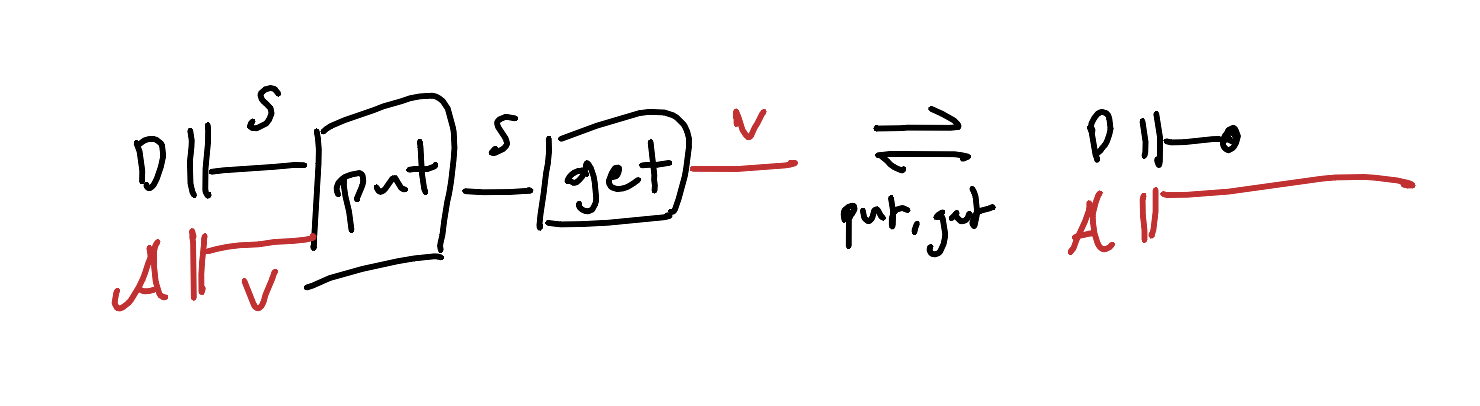 D S put S get V D
A V put, get A